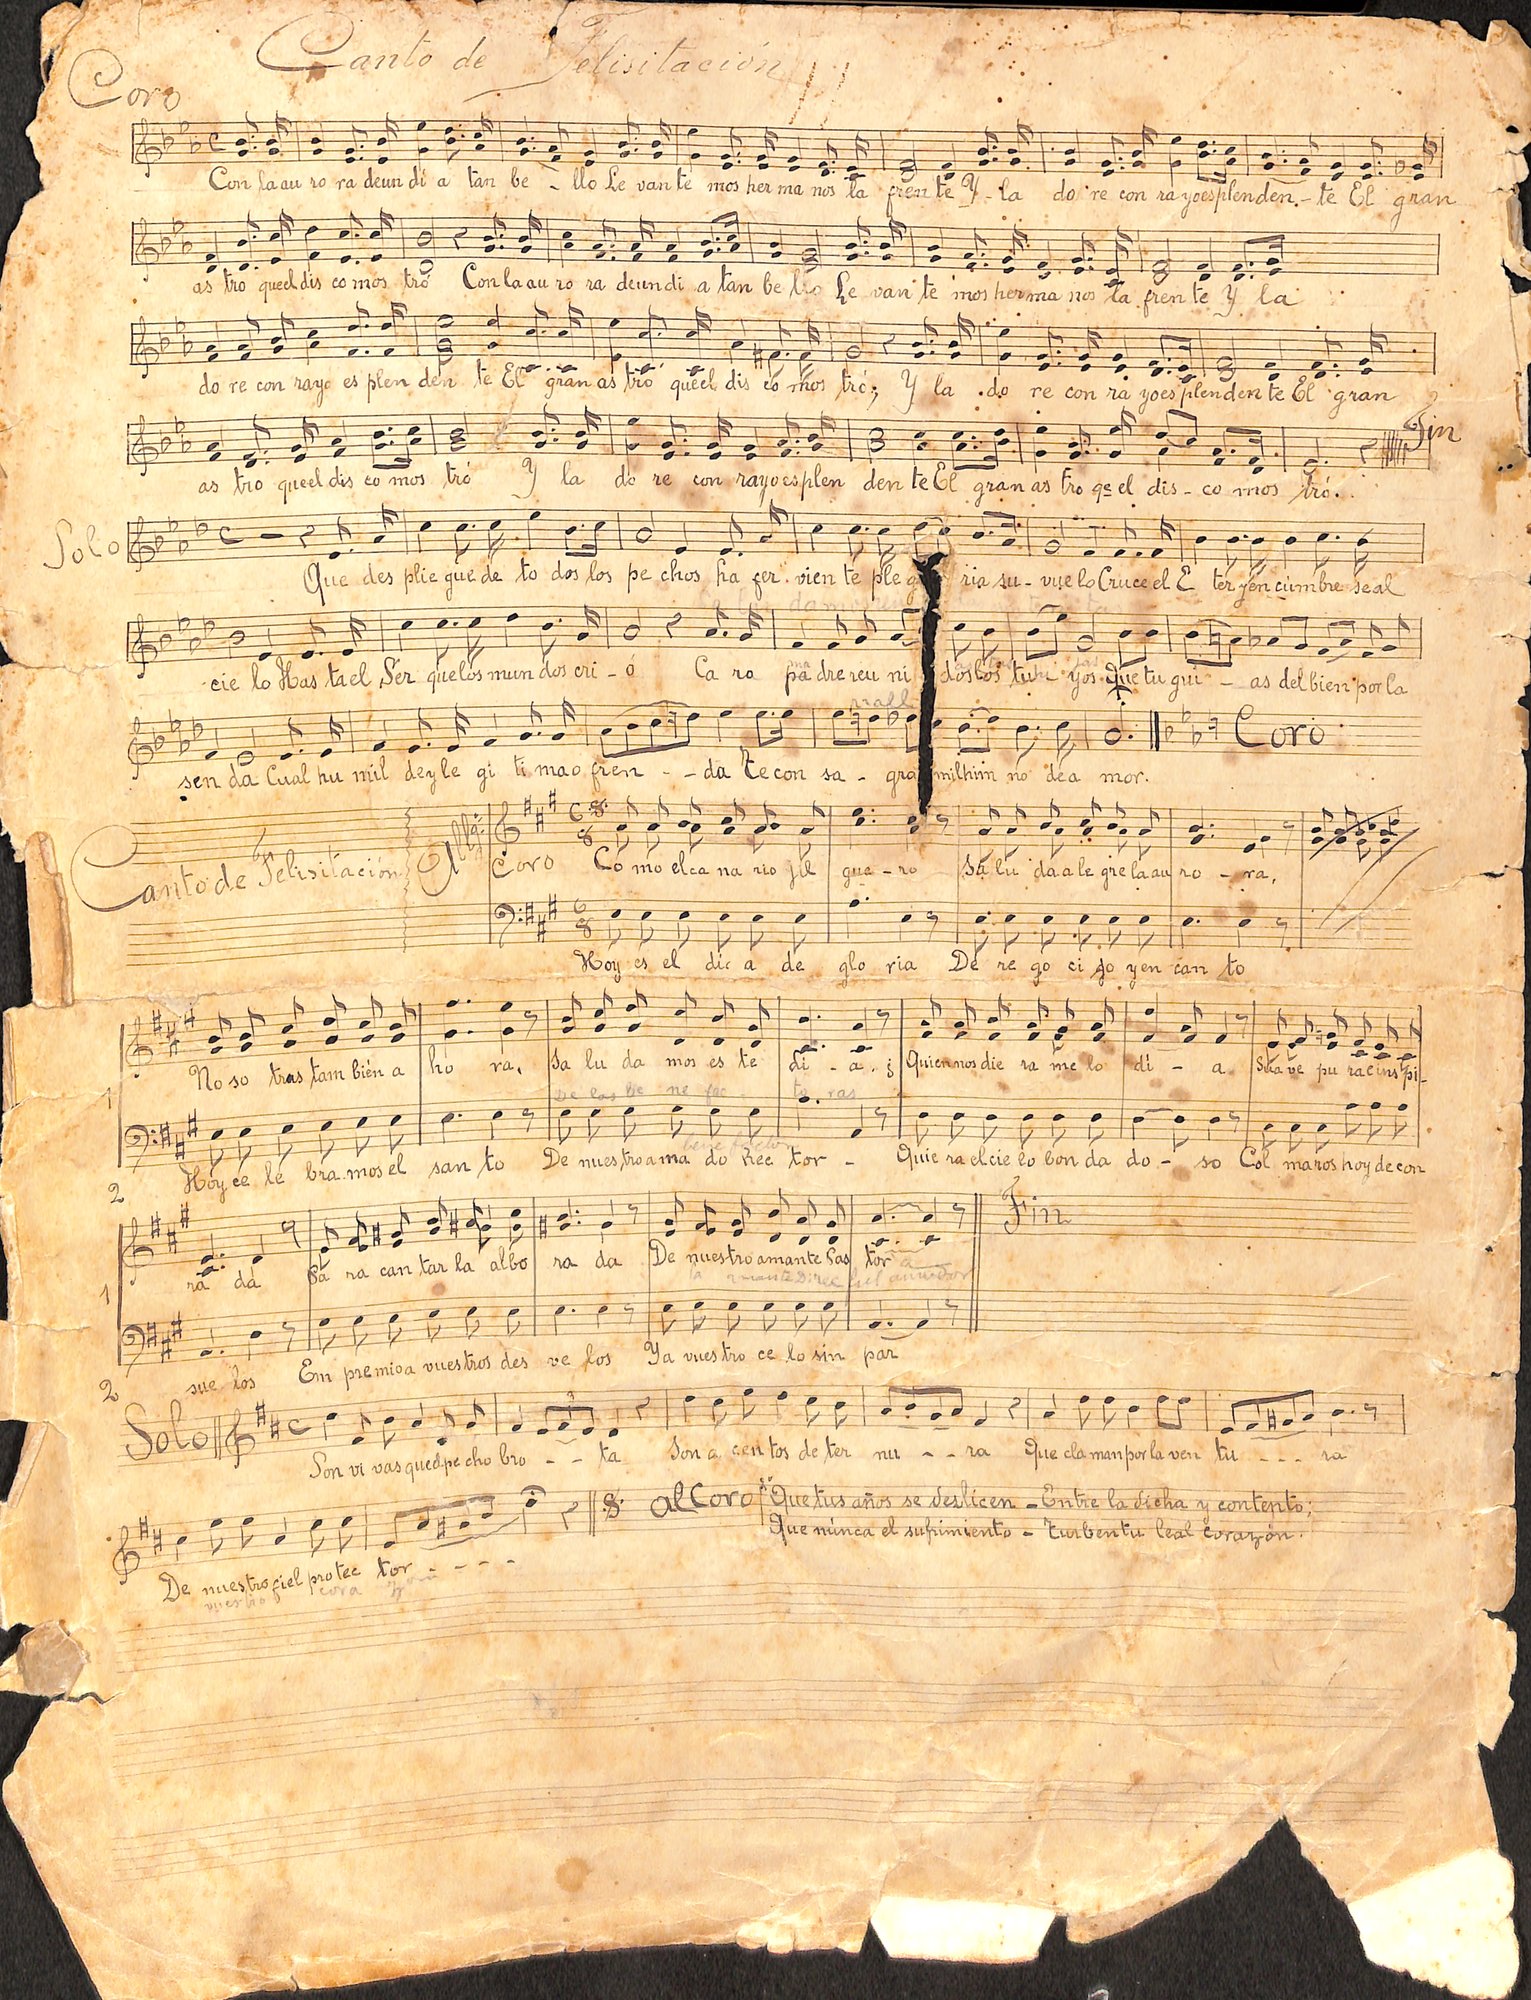 Canto de Felisitación
Coro
Con la au ro ra de un dí a tan be - llo Le van te mos her ma nos la fren te Y - la do re con ra yo esplenden - te El gran
as tro que el dis co mos tró Con la au ro ra de un di a tan be llo Le van te mos her ma nos la fren te Y la
do re con rayo es plen den te El gran as tro que el dis co mos tró; Y la do re con ra yo esplenden te El gran
Fin
as tro que el dis co mos tró Y la do re con rayo esplen den te El gran as tro qe el dis - co mos tró.
Solo
Que des pliegue de to dos los pe chos la fer vien te ple ga ria su - vue lo Cruce el E ter yen cumbre se al
cie lo Has ta el Ser que los mun dos cri - ó Ca ro pa dre reu ni dos los tu yos Que tu gui - as del bien por la
Coro
sen da Cual hu mil de y le gi ti ma o fren - - da Te con sa - gra mil him no de a mor.
Canto de Felisitación Allgº
Coro Co mo el ca na rio jil gue - ro Sa lu da a le gre la au ro - ra,
Hoy es el dia de glo ria De re go ci jo y en can to
1 No so tras tam bién a ho ra, Sa lu da mos es te di - a. ; Quien nos die ra me lo di - a Sua ve pu ra e ins pi -
De las be ne fac to ras
2 Hoy ce le bra mos el san to De nuestro ama do Rec tor - Quie ra el cie lo bon da do - so Col maros hoy de con
Fin
1 ra da Pa ra can tar la al bo ra da De nuestro amante Pas tor
2 sue los Em premio a vuestros des ve los Ya vues tro ce lo sin par
Solo
Son vi vas que el pe cho bro - - ta Son a cen tos de ter nu - - ra Que claman por la ven tu - - - ra
al Coro Que tus años se deslicen - Entre la dicha y contento;
Que núnca el sufrimiento - turben tu leal corazón.
De nuestro fiel protec tor - - - -
vuestro cora zon